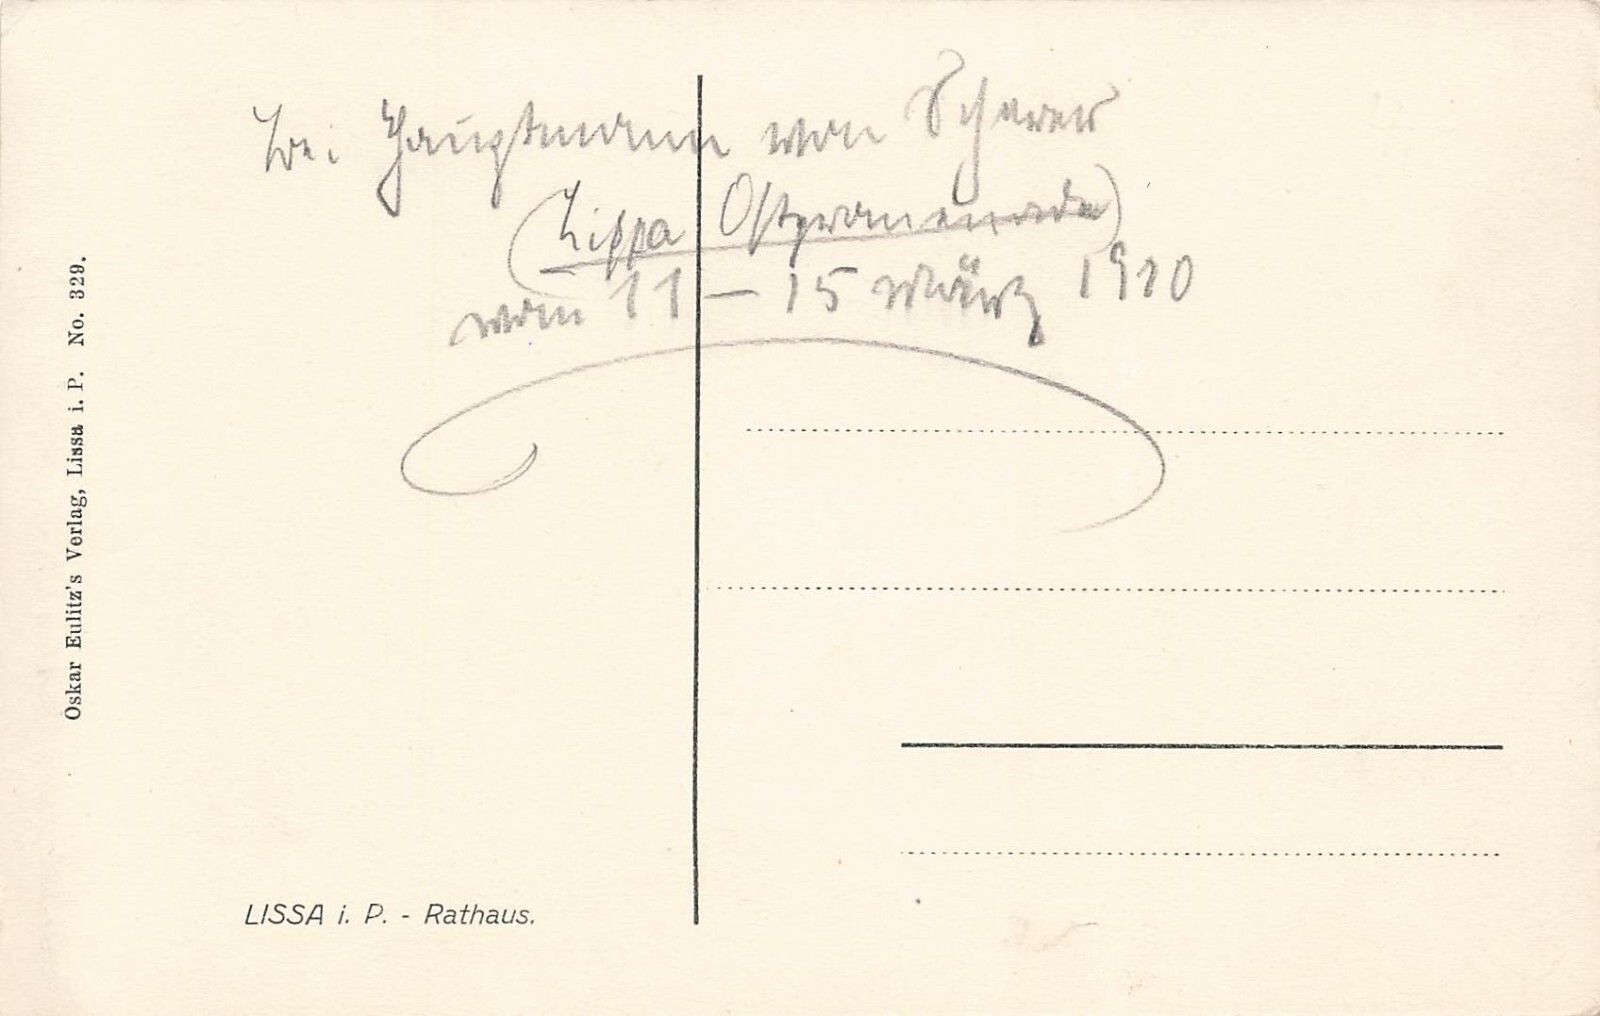 bei Hauptmann von
(Lissa Ostpromenade)
vom 11 – 15 März 1910
Oskar Eulitz's Verlag, Lissa i. P. No. 329.
LISSA i. P. - Rathaus.